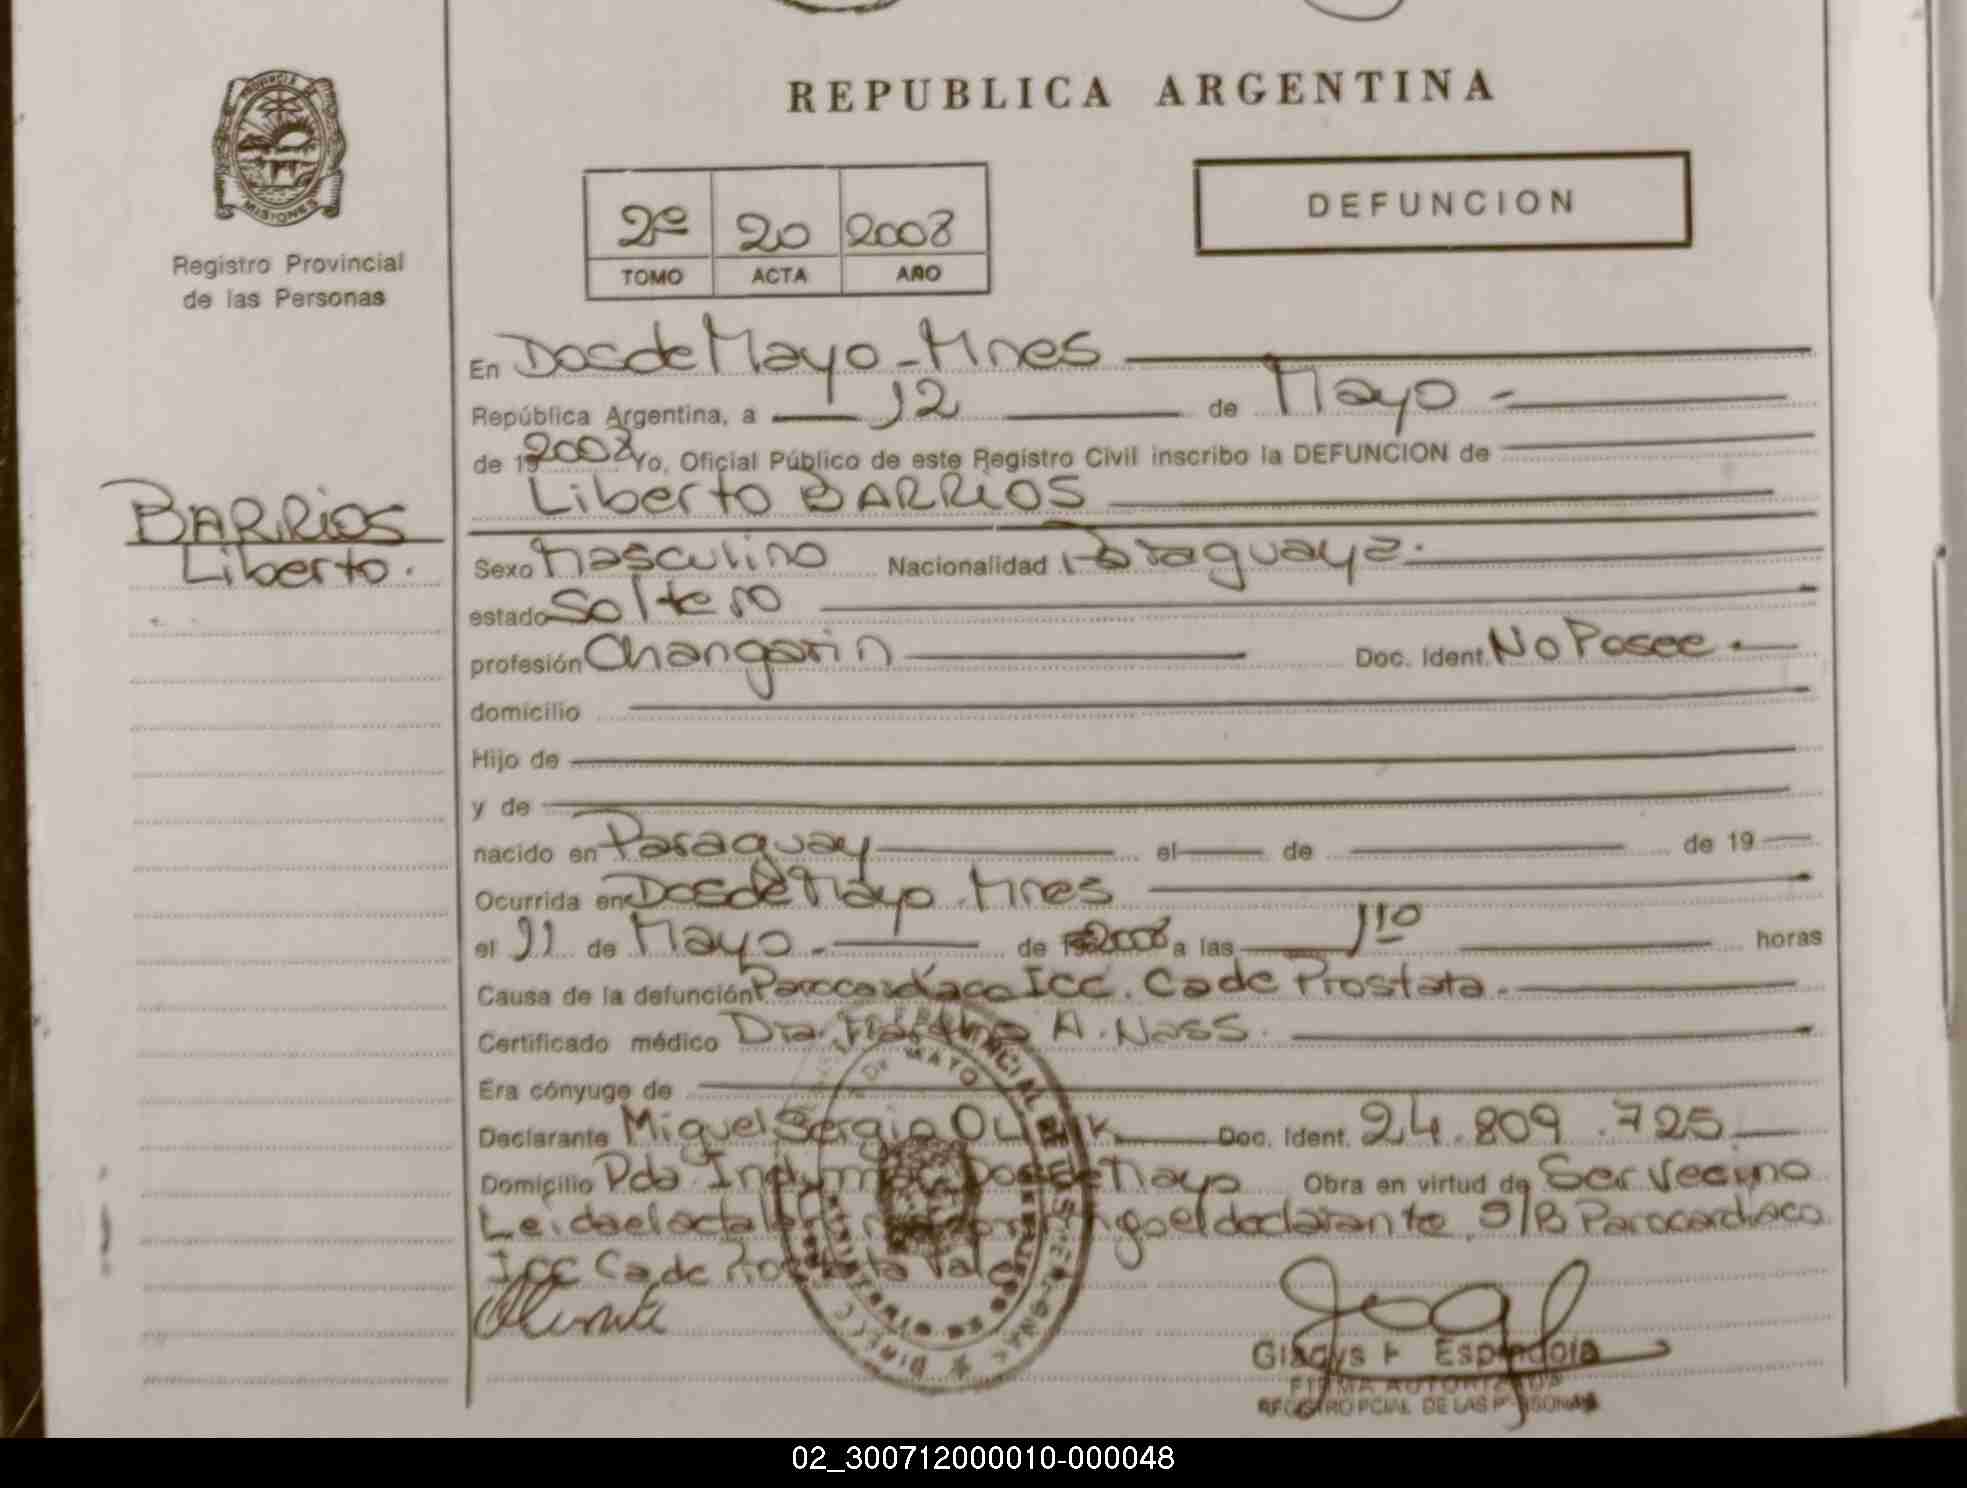 REPUBLICA ARGENTINA
PROVINCIA DE
MISIONES
Registro Provincial
de las Personas
2º 20 2008
TOMO ACTA AÑO
DEFUNCION
En Dos de Mayo - Mnes
República Argentina, a 12 de Mayo -
de 19 2008 Yo, Oficial Público de este Registro Civil inscribo la DEFUNCION de
Liberto BARRIOS
BARRIOS
Liberto.
Sexo Masculino Nacionalidad Paraguaya.
estado Soltero
profesión Changarin Doc. Ident. No Posee.
domicilio
Hijo de
y de
nacido en Paraguay el de de 19
Ocurrida en Dos de Mayo. Mnes
el 11 de Mayo - de 2008 a las 1 10 horas
Causa de la defunción Parocardíaco ICC. Ca de Prostata.
Certificado médico Dra. A. Nass.
Era cónyuge de
Declarante Miguel Sergio Doc. Ident. 24.809.725
Domicilio Pda Dos de Mayo Obra en virtud de Ser Vecino
Leida el acta el declarante. S/B Parocardiaco
ICC Ca de Vale
DE MAYO
Gladys F Espindola
FIRMA AUTORIZADA
REGISTRO PCIAL DE LAS PERSONAS
02_300712000010-000048